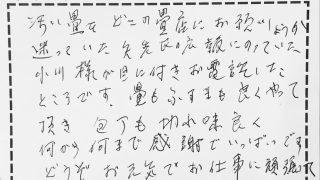 汚い畳を どこの畳店にお願いしようか
迷っていた矢先、広報にのっていた
小川様が目に付きお電話した
ところです。畳もふすまも良くやって
頂き 包丁も切れ味良く
何から何まで感謝でいっぱいです
どうぞ お元気でお仕事に頑張って